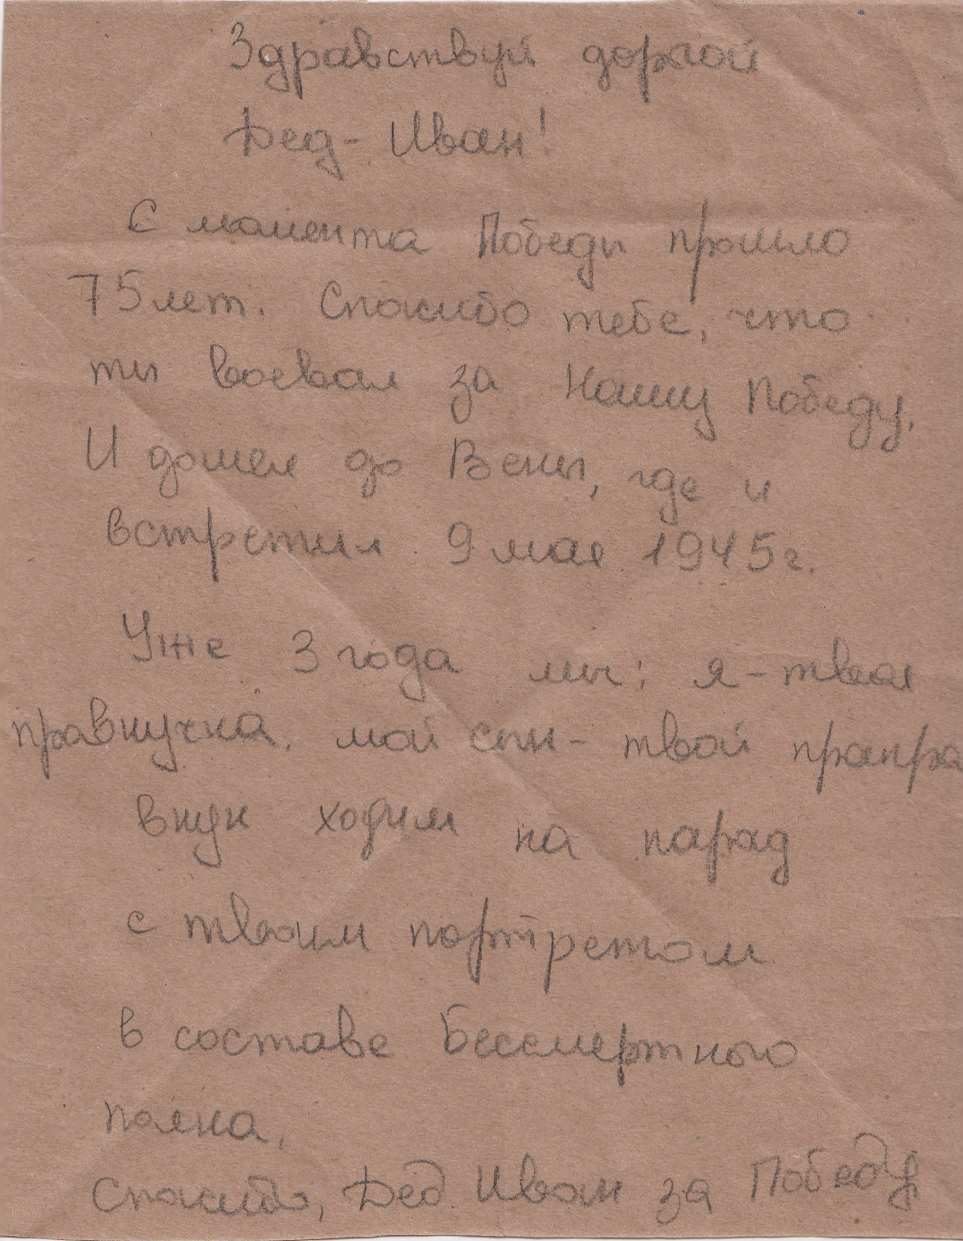 Здравствуй дорогой
Дед- Иван!
С момента Победы прошло
75 лет. Спасибо тебе, что
ты воевал за Нашу Победу.
И дошел до Вены, где и
встретил 9 мая 1945г.
Уже 3 года мы: я-твоя
правнучка, мой сын- твой прапра
внук ходим на парад
с твоим портретом
в составе Бессмертного
полка.
Спасибо, Дед Иван за Победу